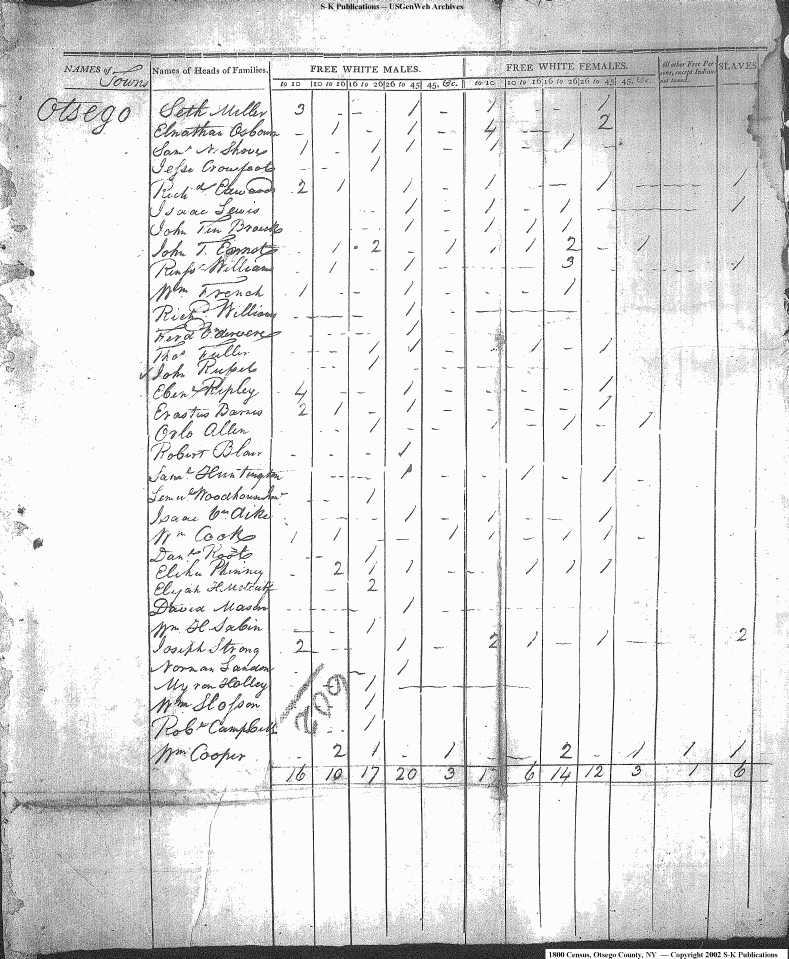 S-K Publications – USGenWeb Archives
NAMES of Towns | Names of Heads of Families. | FREE WHITE MALES. | FREE WHITE FEMALES. | All other Free Persons, except Indians not taxed. | SLAVES
to 10 | 10 to 16 | 16 to 26 | 26 to 45 | 45, &c. | to 10 | 10 to 16 | 16 to 26 | 26 to 45 | 45, &c.
Otsego Seth Miller 3 - - 1 - 1 - - 1
Elnathan Osborn - 1 - 1 - 4 - - 2
Saml N. Shoves 1 - 1 1 - 1 - 1 -
Jesse Crowfoot 1
Richd Edwards 2 1 - 1 - 1 - - 1 - - 1
Isaac Lewis 1 - 1 - 1 - - - 1
John Ten Broeck 1 - 1 1 1
John T. Ernst - 1 2 - 1 1 1 2 - 1
William - 1 - 1 - - - 3 - - - 1
Wm French 1 - - 1 - - - 1
Richd Williams 1
Ferd 1
Thos Fuller - - 1 1 - - 1 - 1
John Russel 1
Eben Ripley 4 - - 1 - - - - 1
Erastus Barnes 2 1 - 1 - - - - 1
Orlo Allen - - 1 - - 1 - 1 - 1
Robert Blair - - - 1
Saml Huntington - - - 1 - - 1 - 1
Woodhouse 1
Isaac Vn Dike 1 - 1 - - 1
Wm Cook 1 1 - - 1 1 - 1 1 -
Danl Root - - 1
Elihu Phinney - 2 1 1 - - 1 1 1
Elijah H Metcalf 2
David Mason - - - 1
Wm H Sabin 1
Joseph Strong 2 - - 1 - 2 1 - 1 - - 2
Norman Landon 1
Myron Holley 1
Wm Slosson 1
Robt Campbell 1
209
Wm Cooper - 2 1 - 1 - - 2 - 1 1 1
16 10 17 20 3 6 14 12 3 1 6
1800 Census, Otsego County, NY — Copyright 2002 S-K Publications